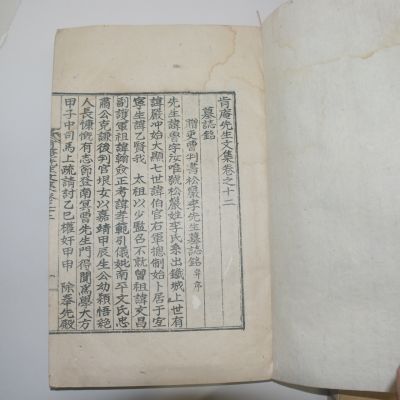 肯庵先生文集卷之十二
墓誌銘
贈吏曹判書松巖李先生墓誌銘 幷序
先生諱魯字汝唯號松巖姓李氏系出鐵城上世有
諱嚴冲始大顯七世諱伯官右軍摠制始卜居于宜
寧生諱乙賢我 太祖以少監召不就曾祖諱文昌
副護軍祖諱翰僉正考諱孝範引儀妣南平文氏忠
肅公克謙後判官垠女以嘉靖甲辰生公幼穎悟絶
人長慷慨有志節登南冥曺先生門得聞爲學大方
甲子中司馬上疏請討乙巳權奸甲申 除奉先殿